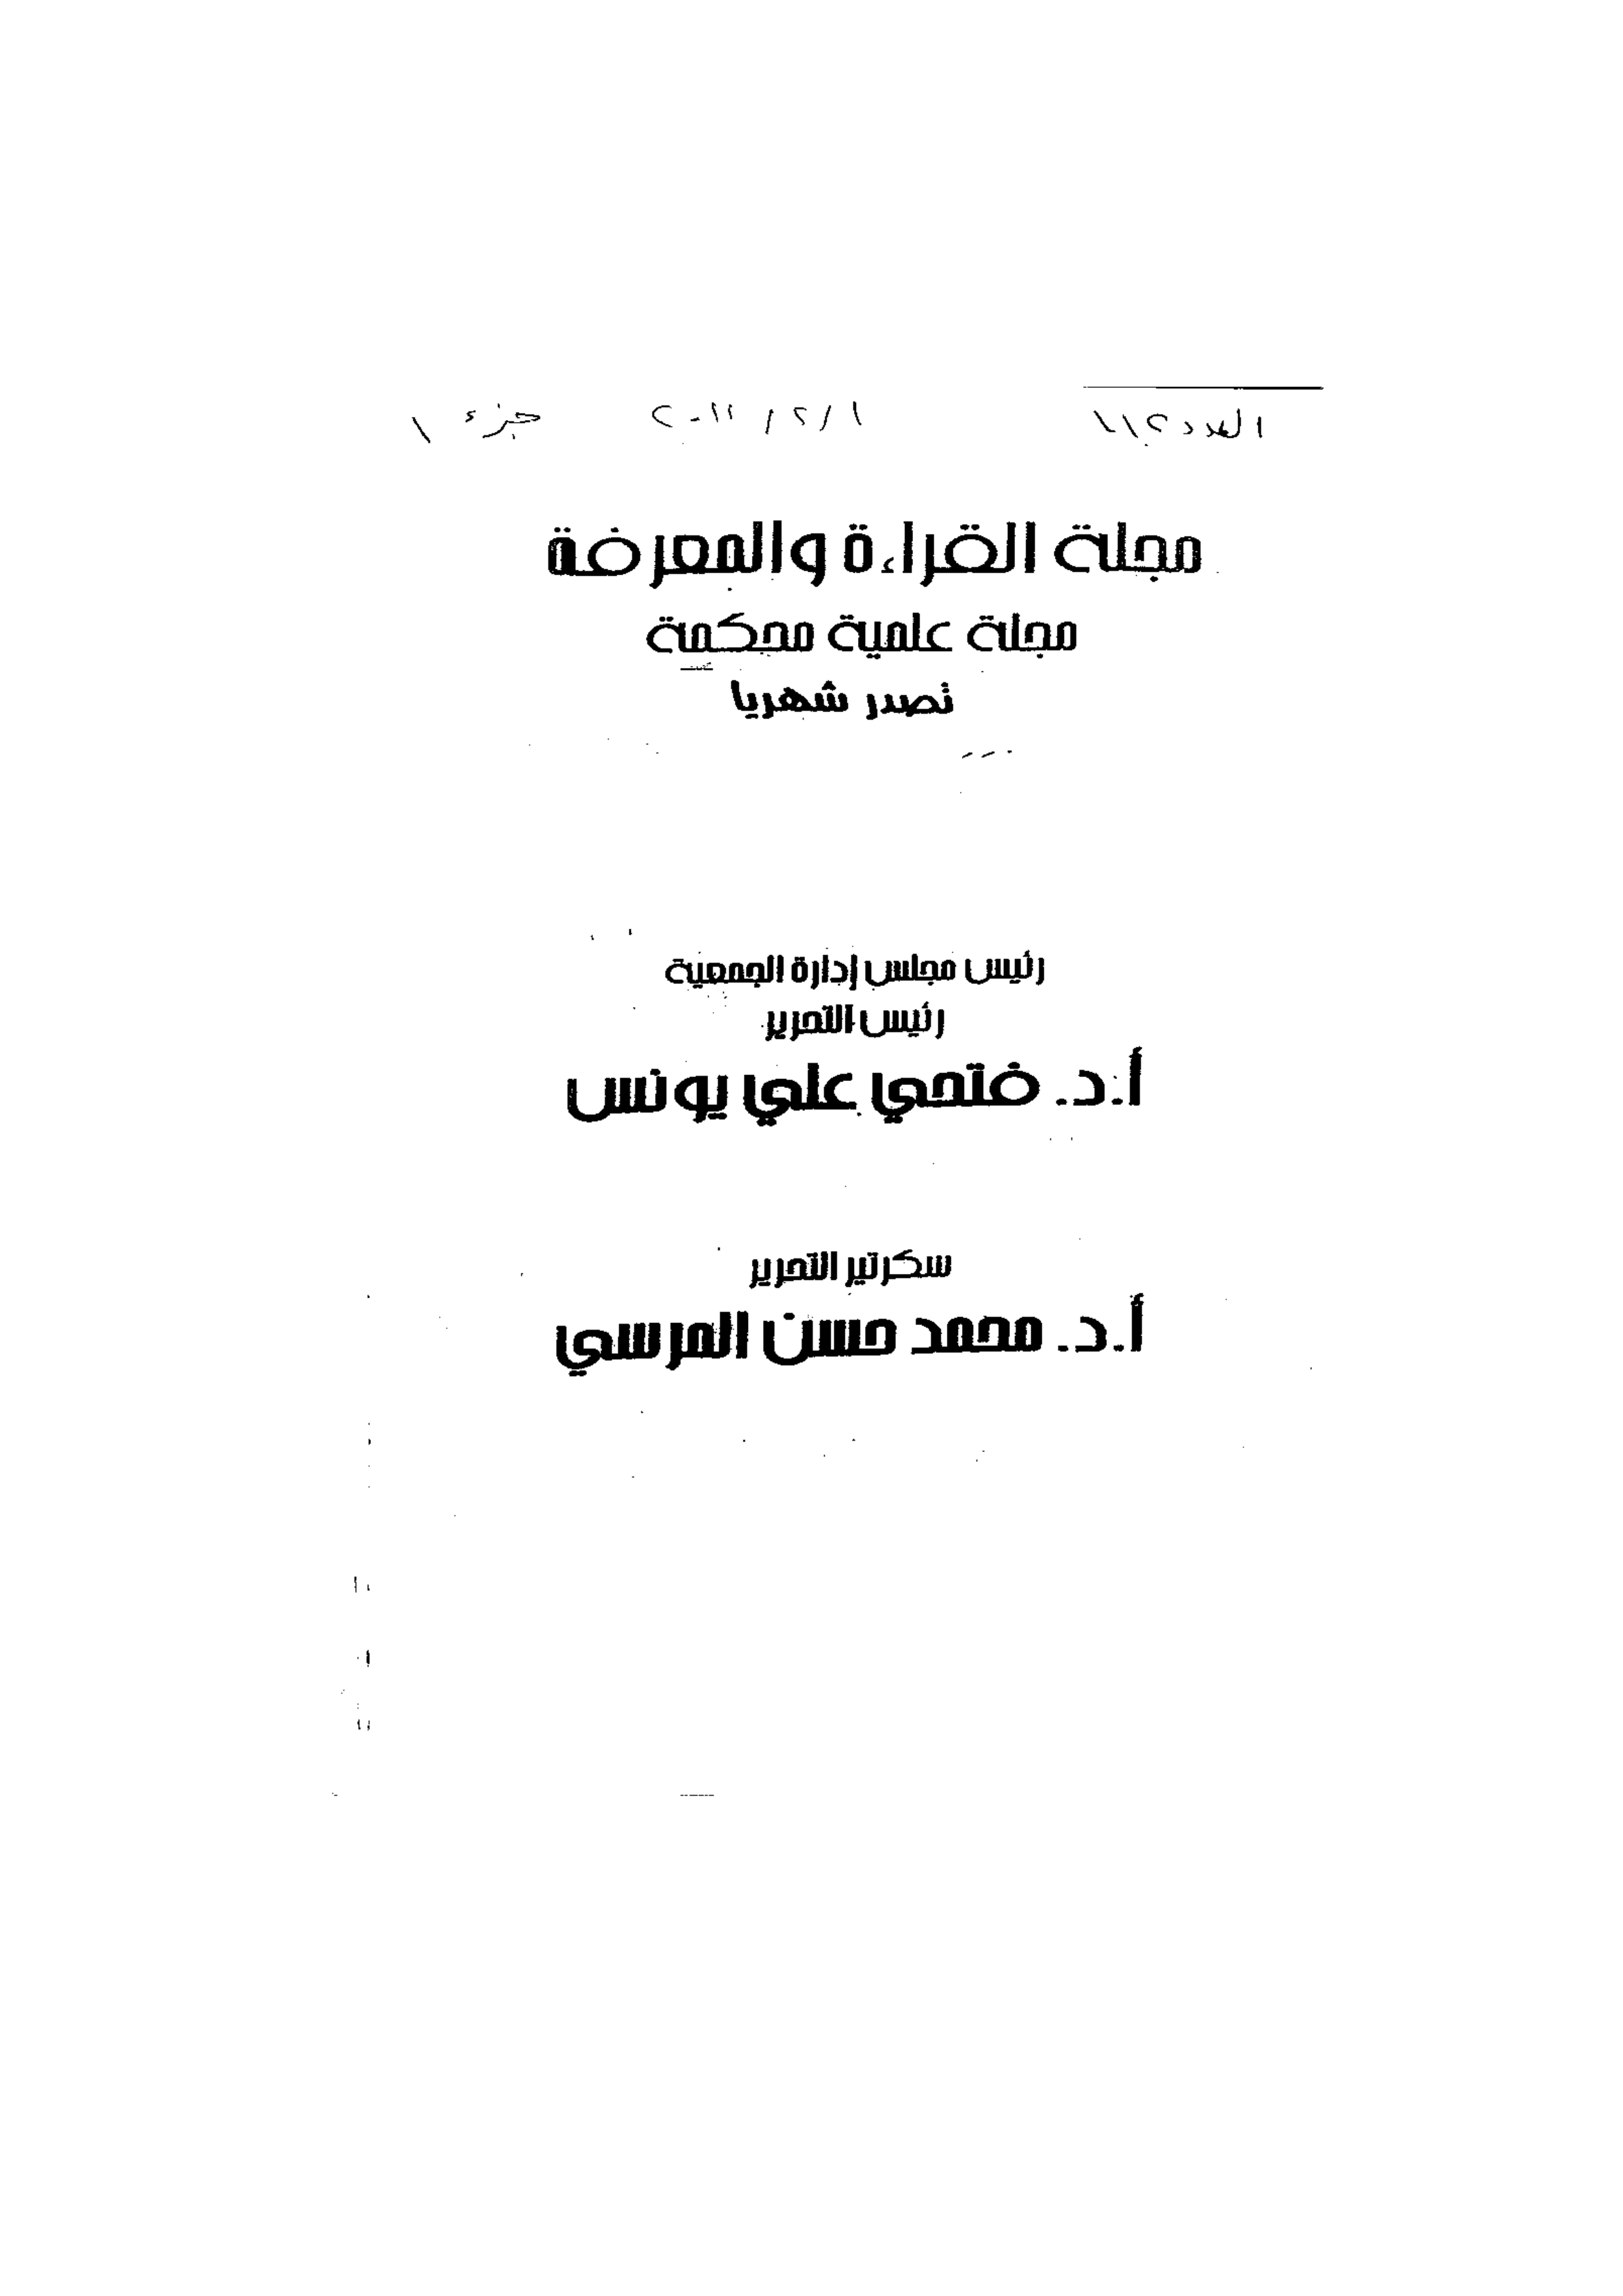 العدد ١١٢ ١/٢/٢٠١١ جزء ١
مجلة القراءة والمعرفة
مجلة علمية محكمة
تصدر شهريا
رئيس مجلس إدارة الجمعية
رئيس التحرير
أ.د. فتحي علي يونس
سكرتير التحرير
أ.د. محمد حسن المرسي